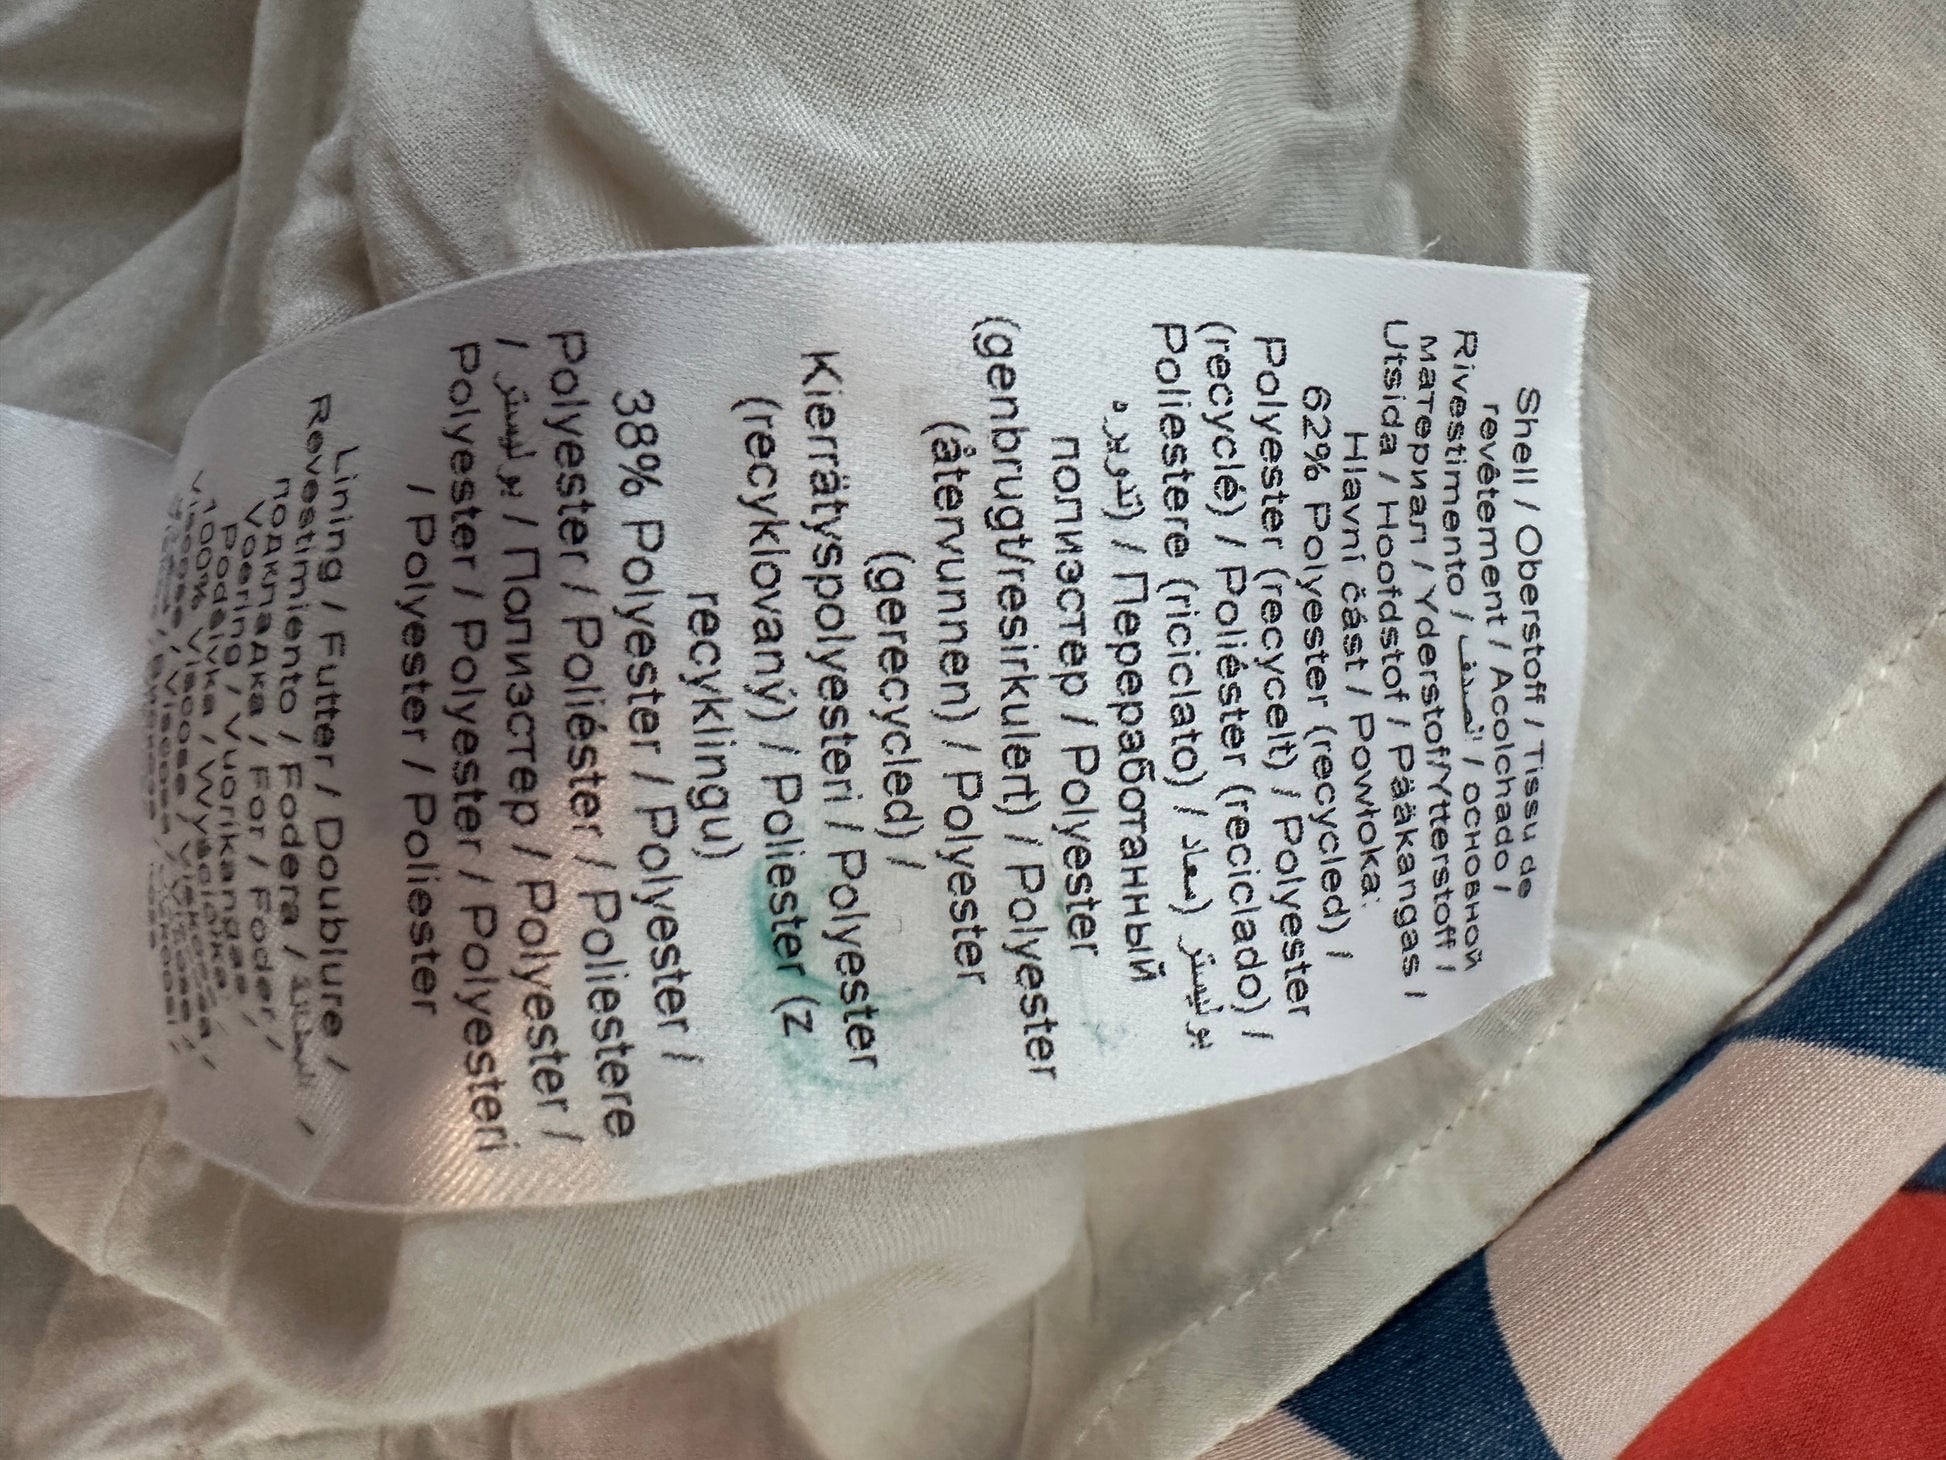 Shell / Oberstoff / Tissu de
revêtement / Acolchado /
Rivestimento / الصدف / основной
материал / Yderstof/Ytterstoff /
Utsida / Hoofdstof / Pääkangas /
Hlavní část / Powłoka:
62% Polyester (recycled) /
Polyester (recycelt) / Polyester
(recyclé) / Poliéster (reciclado) /
Poliestere (riciclato) / بوليستر (معاد
تدويره) / Переработанный
полиэстер / Polyester
(genbrugt/resirkulert) / Polyester
(återvunnen) / Polyester
(gerecycled) /
Kierrätyspolyesteri / Polyester
(recyklovaný) / Poliester (z
recyklingu)
38% Polyester / Polyester /
Polyester / Poliéster / Poliestere
/ بوليستر / Полиэстер / Polyester /
Polyester / Polyester / Polyesteri
/ Polyester / Poliester
Lining / Futter / Doublure /
Revestimiento / Fodera /
Подкладка / For / Foder /
Voering / Vuorikangas /
Podšívka / Wyściółka:
100% Viscose / Viskose /
Viscose / Viscosa /